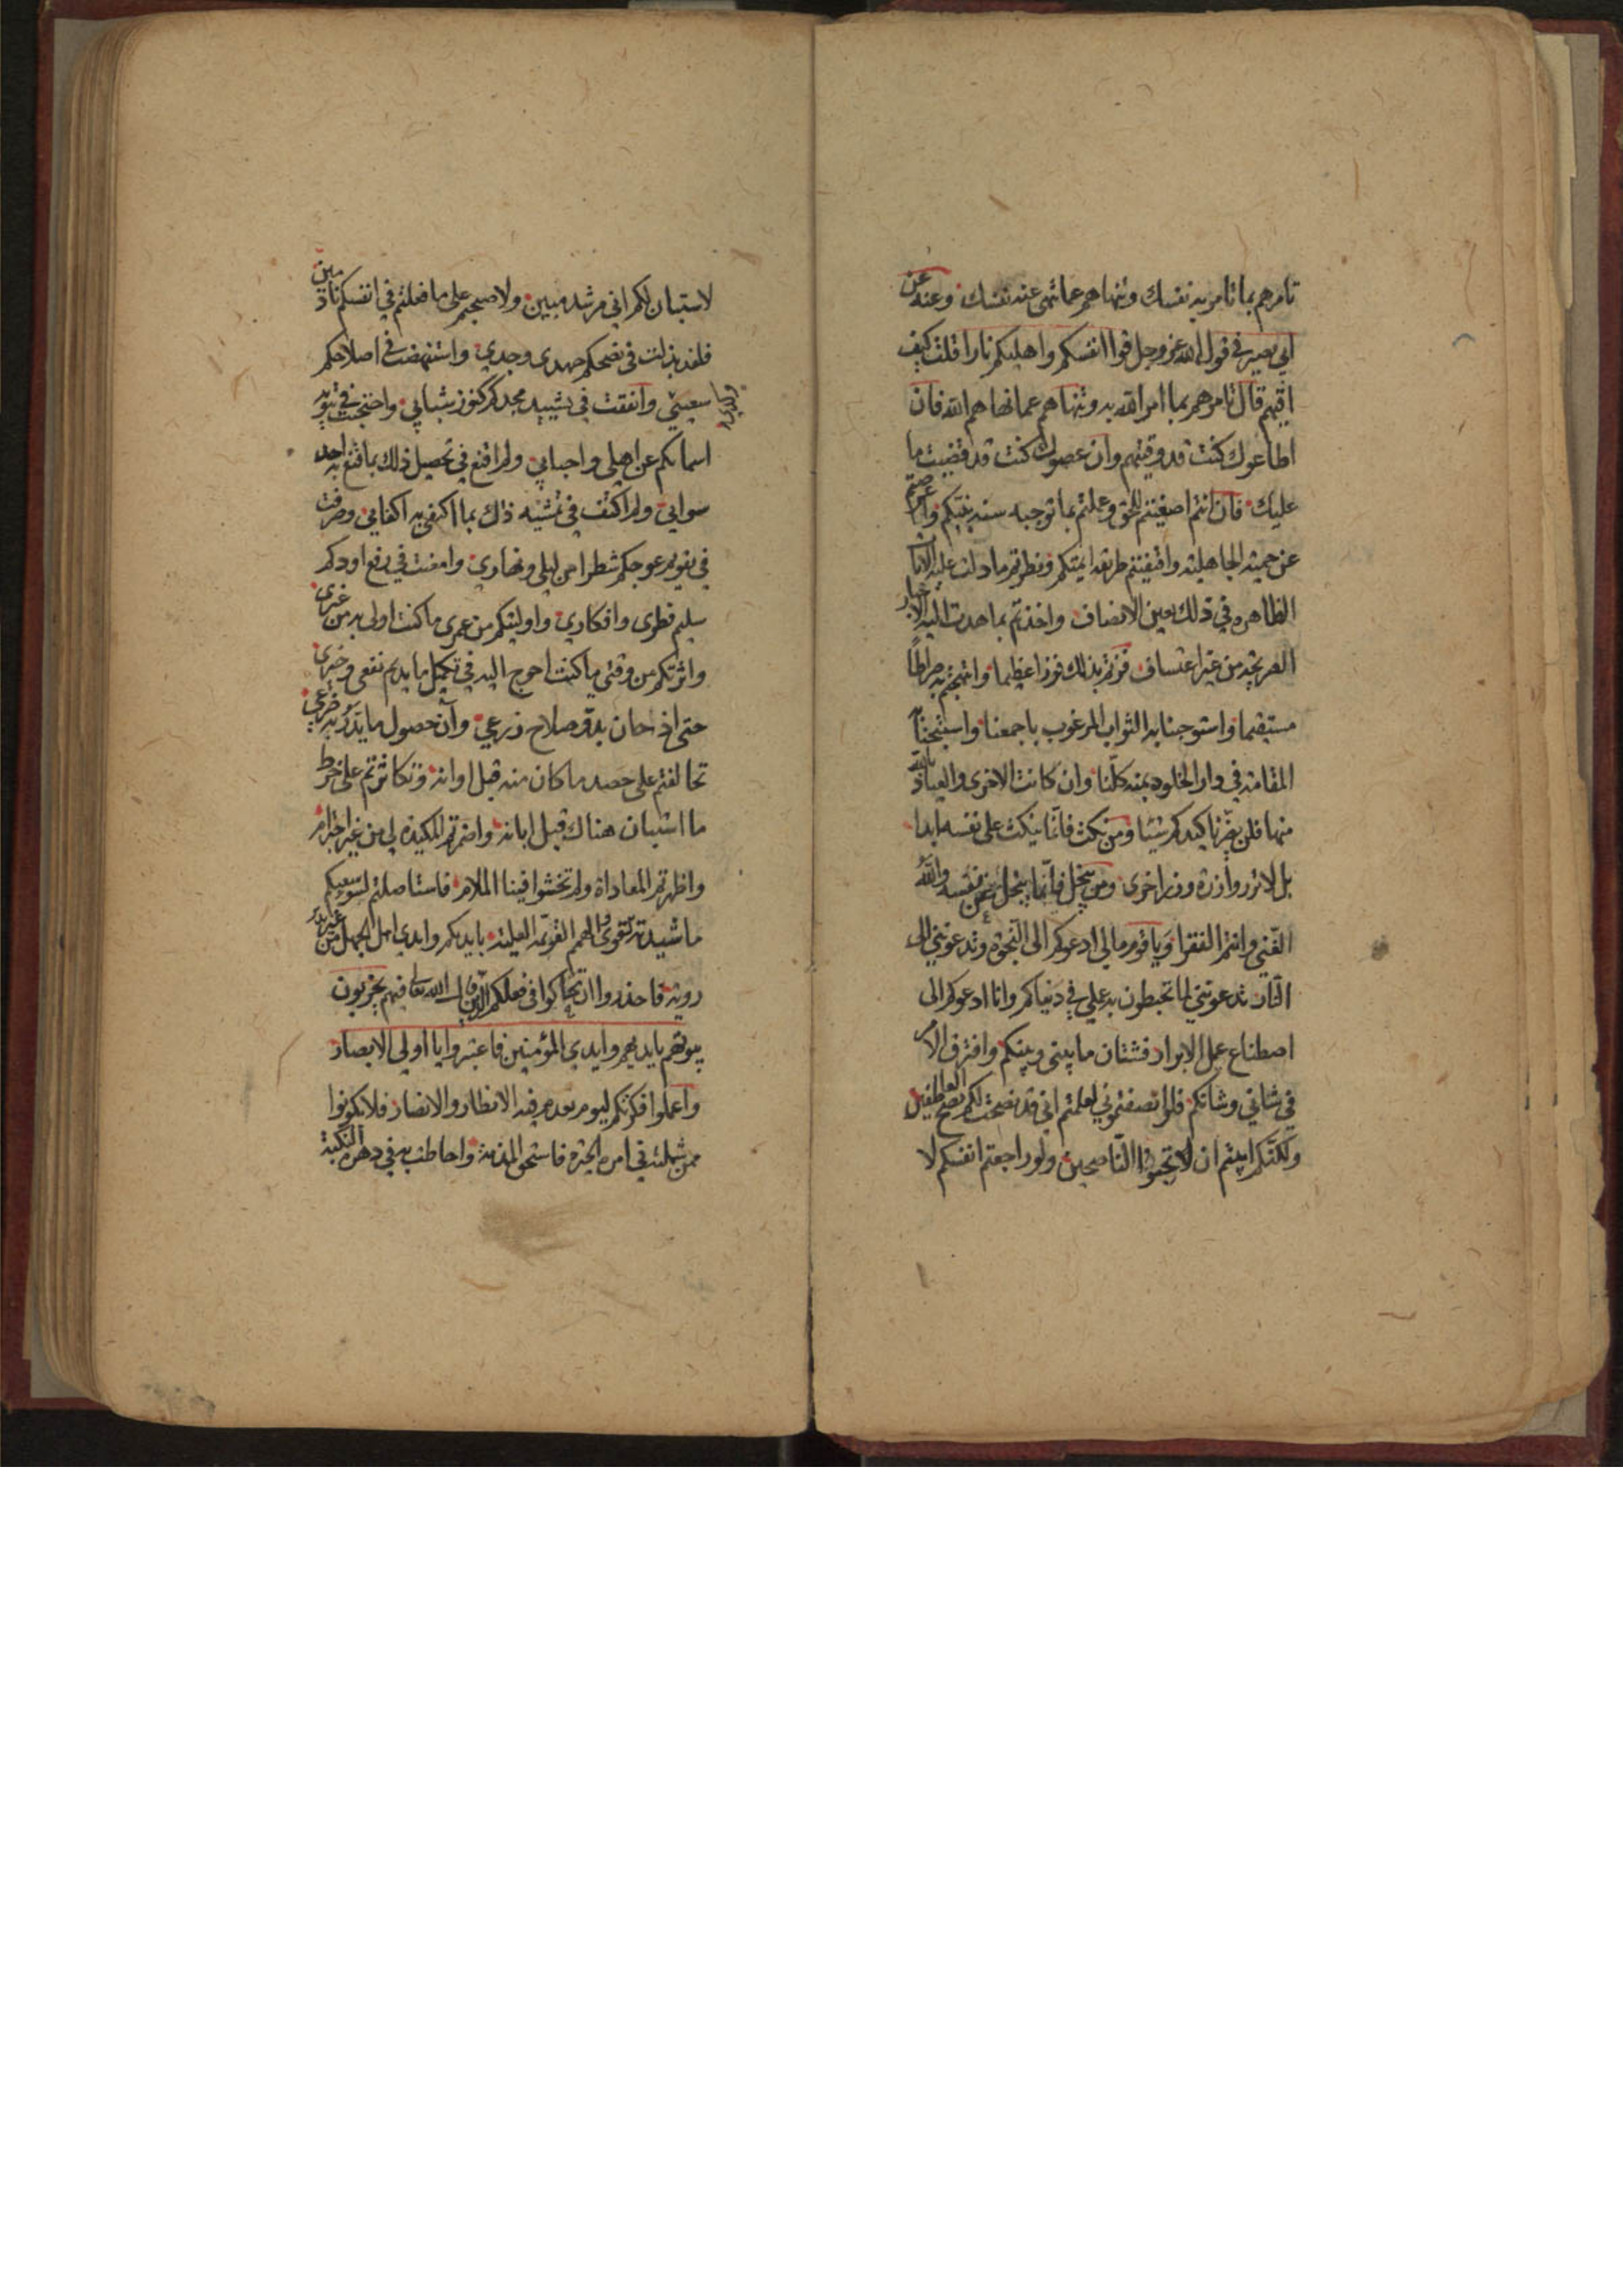 تامرهم بما تامر به نفسك وتنهاهم عما تنهى عنه نفسك وعنه عن
ابي بصير في قول الله عز وجل قوا انفسكم واهليكم نارا قلت كيف
اقيهم قال تامرهم بما امر الله به وتنهاهم عما نهاهم الله فان
اطاعوك كنت قد وقيتهم وان عصوك كنت قد قضيت ما
عليك فان انتم اصغيتم للحق وعملتم بما توجبه سنة نبيكم
عن حمية الجاهلية واقتفيتم طريقة ايمتكم ونظرتم ما دلت عليه
الظاهرة في ذلك بعين الانصاف واخذتم بما هدت اليه الاخبار
الصريحة من غير اعتساف فزتم بذلك فوزا عظيما صراطا
مستقيما واستوجبنا به الثواب المرغوب باجمعنا
المقامة في دار الخلود بمنه كلنا وان كانت الاخرى والعياذ بالله
منها فلن يضرنا كيدكم شيئا ومن نكث فانما ينكث على نفسه ابدا
بل لا تزر وازرة وزر اخرى ومن يبخل فانما يبخل عن نفسه والله
الغني وانتم الفقرا ويا قوم مالي ادعوكم الى النجوة وتدعونني الى
النار تدعونني لما تحبطون به عملي في دنياكم وانا ادعوكم الى
اصطناع عمل الابرار فشتان ما بيني وبينكم وافترق الامر
في شاني وشانكم فلو انصفتموني لعلمتم اني قد نصحت لكم نصح العاطفين
ولكنكم ابيتم ان لا تحبوا الناصحين ولو راجعتم انفسكم لا
لاستبان لكم اني مرشد مبين ولاصبحتم على ما فعلتم في انفسكم نادمين
فلقد بذلت في نصحكم جهدي وجدي واستنهضت في اصلاحكم
وانفقت في تشييد مجدكم كنوز شبابي
اسمائكم عن اهلي واحبابي ولم اقنع في تحصيل ذلك بما قنع به احد
سوائي ولم اكتف في ذلك بما اكتفى به اكفائي وصرفت
في تقويم عوجكم شطرا من ليلي ونهاري وامعنت في رفع اودكم
سليم نظري وافكاري واوليتكم من عمري ما كنت اولى به من غيري
واثرتكم من وقتي ما كنت احوج اليه في تكميل ما يديم نفعي
حتى اذا حان بدو صلاح زرعي وآن حصول ما يدر به ضرعي
تحالفتم على حصد ما كان منه قبل اوانه وتكاثرتم على خرط
ما استبان هناك قبل ابانه واضمرتم المكيدة لي من غير اجترام
واظهرتم المعاداة ولم تخشوا فينا الملام فاستاصلتم لسوء سعيكم
ما شيدته بايديكم وايدي اهل الجهل من غير
روية فاحذروا ان تحاكوا في فعلكم الذين قال الله تعالى فيهم يخربون
بيوتهم بايديهم وايدي المؤمنين فاعتبروا يا اولي الابصار
واعملوا فكركم ليوم تعدم فيه الانظار والانصار فلا تكونوا
ممن شملته في امره الحيرة فاستحق المذمة واحاطت به في دهره النكبة